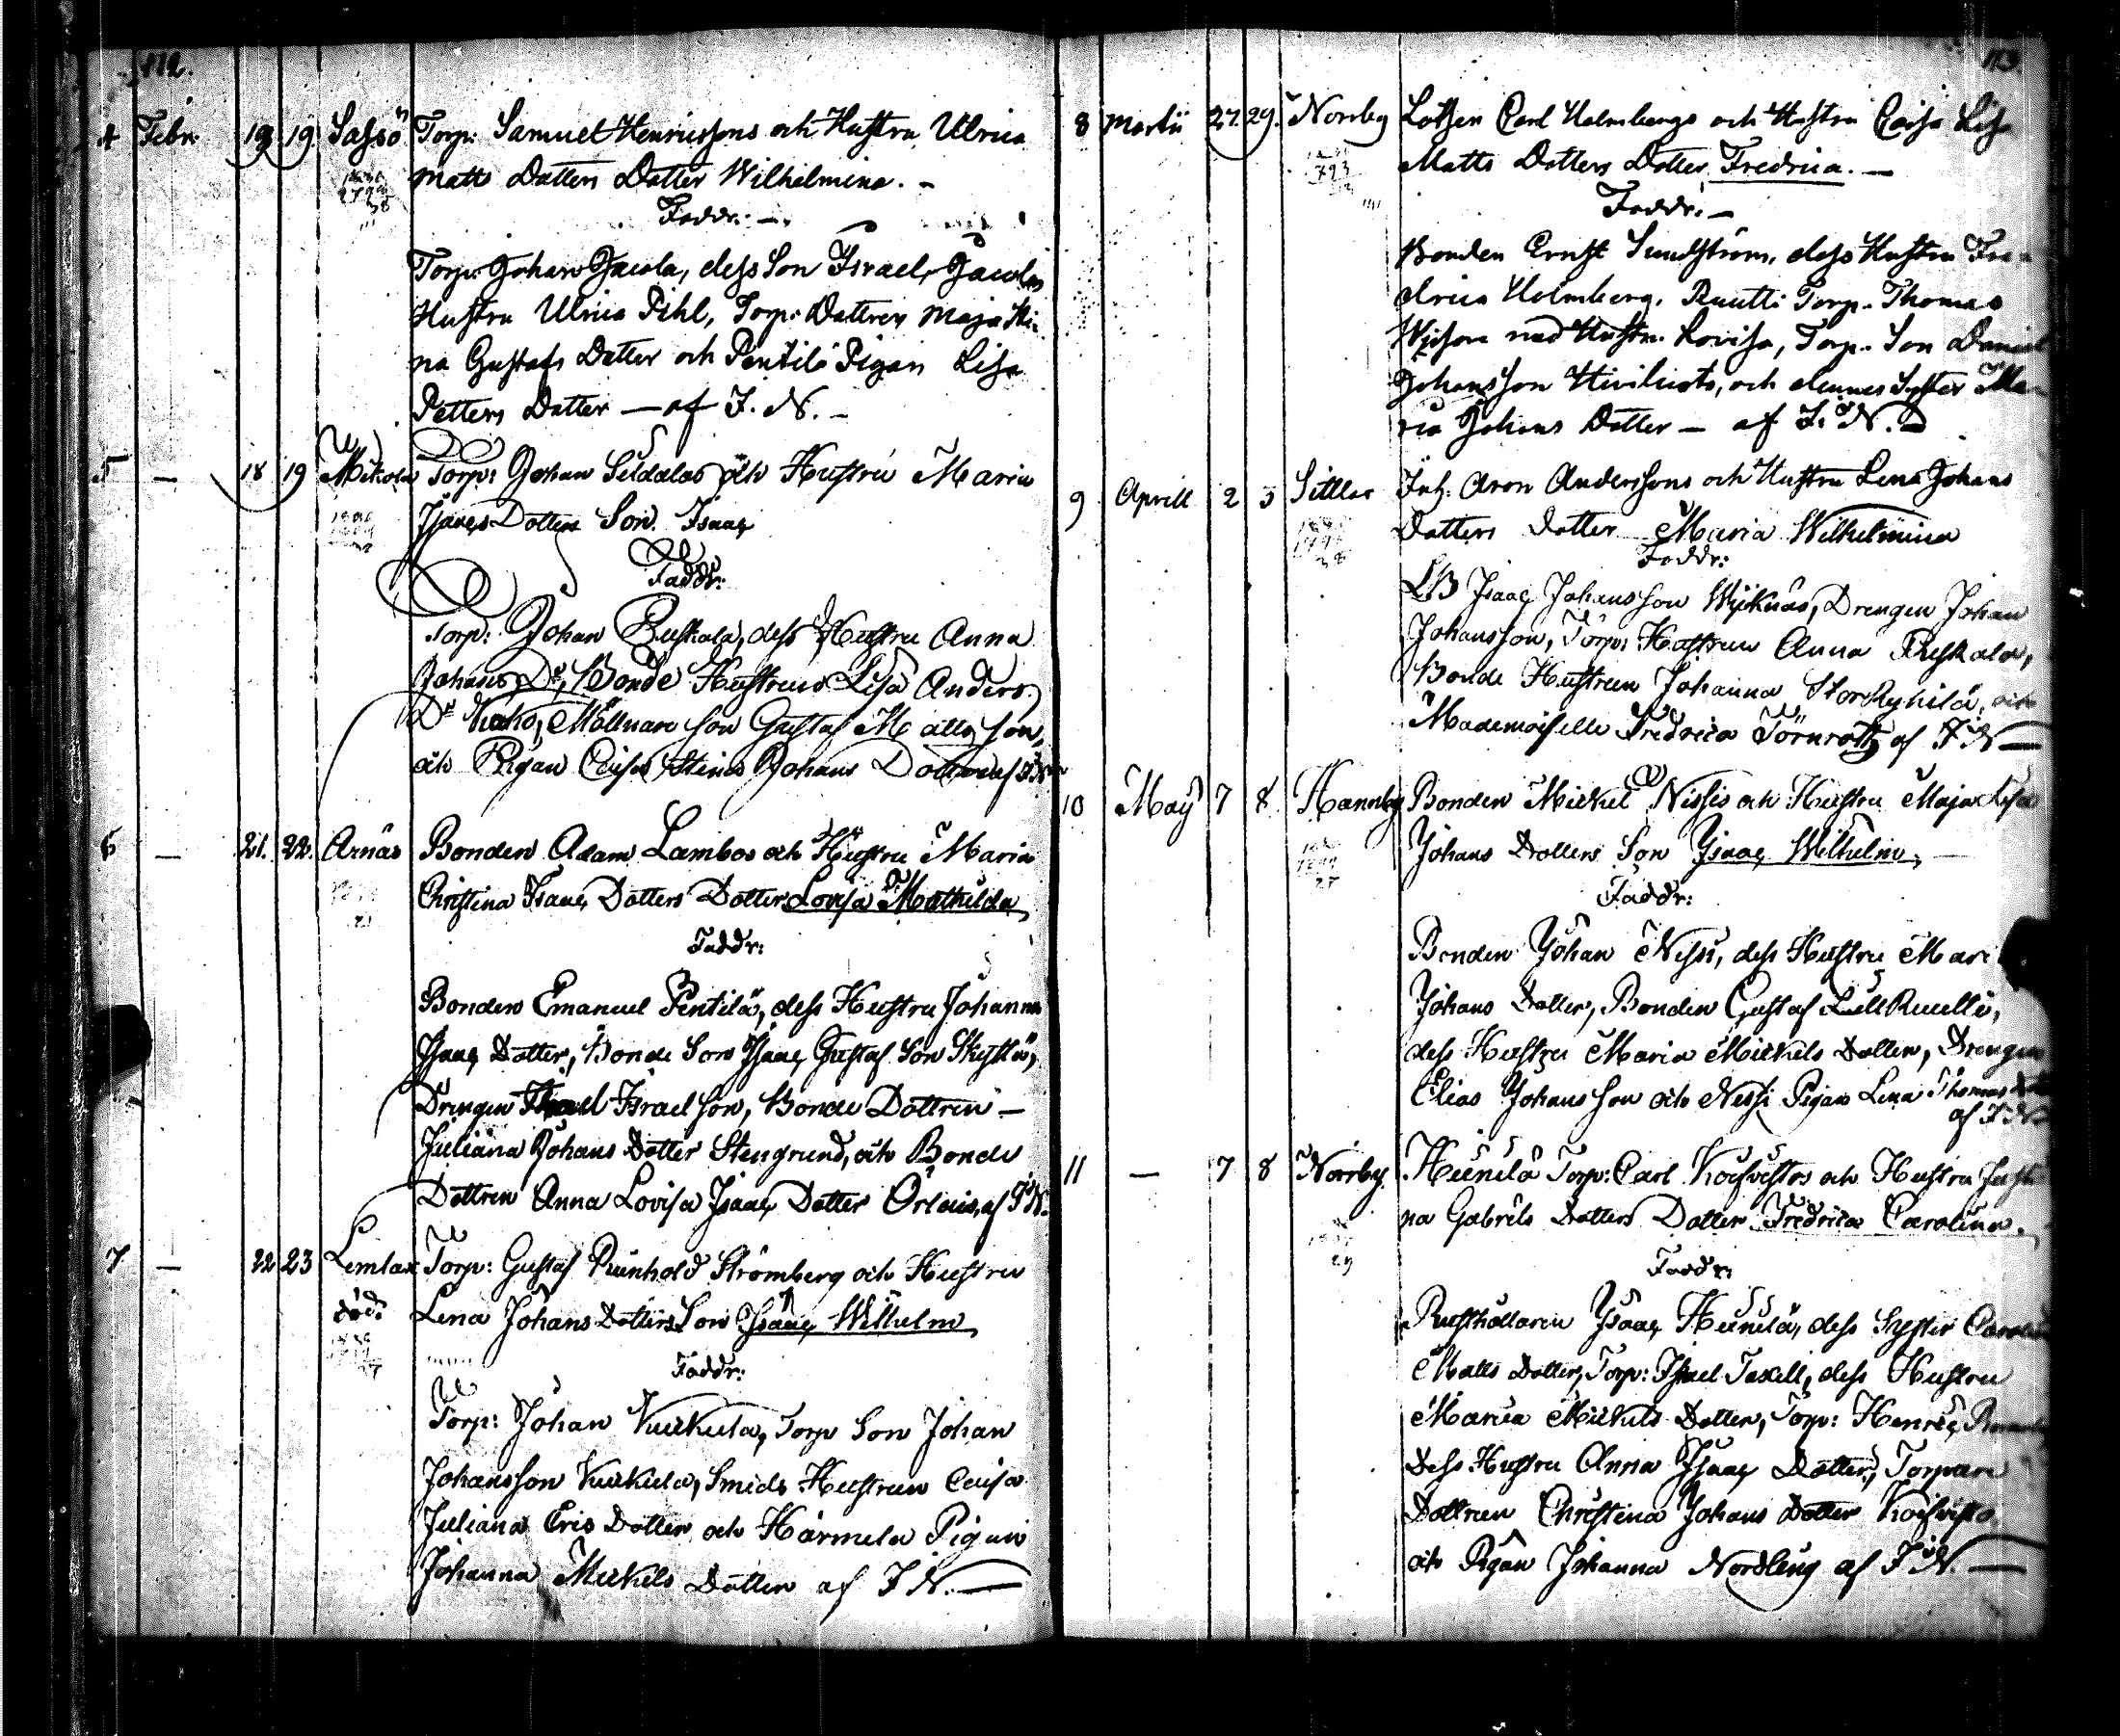 112.
4 Febr: 19 19. Sassö Torp: Samuel Henricssons och Hustru Ulrica
Matts Dotters Dotter Wilhelmina. –
Faddr: –
Torp: Johan Jacola, dess Son Israel, Jacolas
Hustru Ulrica Pihl, Torp: Dottren Maja Sti-
na Gustafs Dotter och Pentilä Pigan Lisa
Petters Dotter – af J. N. –
5 – 18 19 Mikola Torp: Johan Sildalas och Hustru Maria
Isaacs Dotters Son Isaac
Faddr:
Torp: Johan Ruskala, dess Hustru Anna
Johans Dr, Bonde Hustrun Lisa Anders
Dr Kuko, Möllnare Son Gustaf Mattsson,
och Pigan Caisa Stina Johans Dotter af J N
6 – 21. 22. Arnäs Bonden Adam Lambos och Hustru Maria
Christina Isaac Dotters Dotter Lovisa Mathilda
Faddr:
Bonden Emanuel Pentilä, dess Hustru Johanna
Isaac Dotter, Bonde Son Isaac Gustaf Son
Drengen Israel Israelson, Bonde Dottren –
Juliana Johans Dotter Stengrund, och Bonde
Dottren Anna Lovisa Isaac Dotter af J N.
7 – 22 23 Lemlax Torp: Gustaf Reinhold Strömberg och Hustru
död. Lena Johans Dotters Son Isaac Wilhelm
Faddr:
Torp: Johan Kurkula, Torp Son Johan
Johansson Kurkula, Smids Hustrun Caisa
Juliana Eris Dotter och Härmälä Pigan
Johanna Mickels Dotter af J N. –
113
8 Martii 27. 29. Norrby Lotsen Carl Holmbergs och Hustru Caisa Lisa
Matts Dotters Dotter Fredrica. –
Faddr: –
Bonden Ernst Sundström, dess Hustru Fre-
drica Holmberg, Ruutti Torp. Thomas
med Hustr. Lovisa, Torp. Son Daniel
Johansson och dennes Syster Ma-
ria Johans Dotter – af J. N.
9 Aprill 2 3 Inh. Aron Anderssons och Hustru Lena Johans
Dotters Dotter Maria Wilhelmina
Faddr:
Isaac Johansson Wyknäs, Drengen Johan
Johansson, Torp: Hustrun Anna Ruskala,
Bonde Hustrun Johanna och
Mademoiselle Fredrica Törnroth af J N –
10 May 7 8 Bonden Mickel Nissis och Hustru Maja Lisa
Johans Dotters Son Isaac Wilhelm, –
Faddr:
Bonden Johan Nissi, dess Hustru Mari
Johans Dotter, Bonden Gustaf
dess Hustru Maria Mickels Dotter, Drengen
Elias Johansson och Nessi Pigan Lena Thomas
af J N
11 – 7 8 Norrby Heinilä Torp: Carl Koivistos och Hustru
na Gabriels Dotters Dotter Fredrica Carolina.
Faddr:
Rusthållaren Isaac Heinilä, dess Syster Carolina
Matts Dotter, Torp: Israel Taxell, dess Hustru
Maria Mickels Dotter, Torp: Henric
dess Hustru Anna Isaac Dotter, Torpare
Dottren Christina Johans Dotter Koivisto
och Pigan Johanna Nordling af J N. –